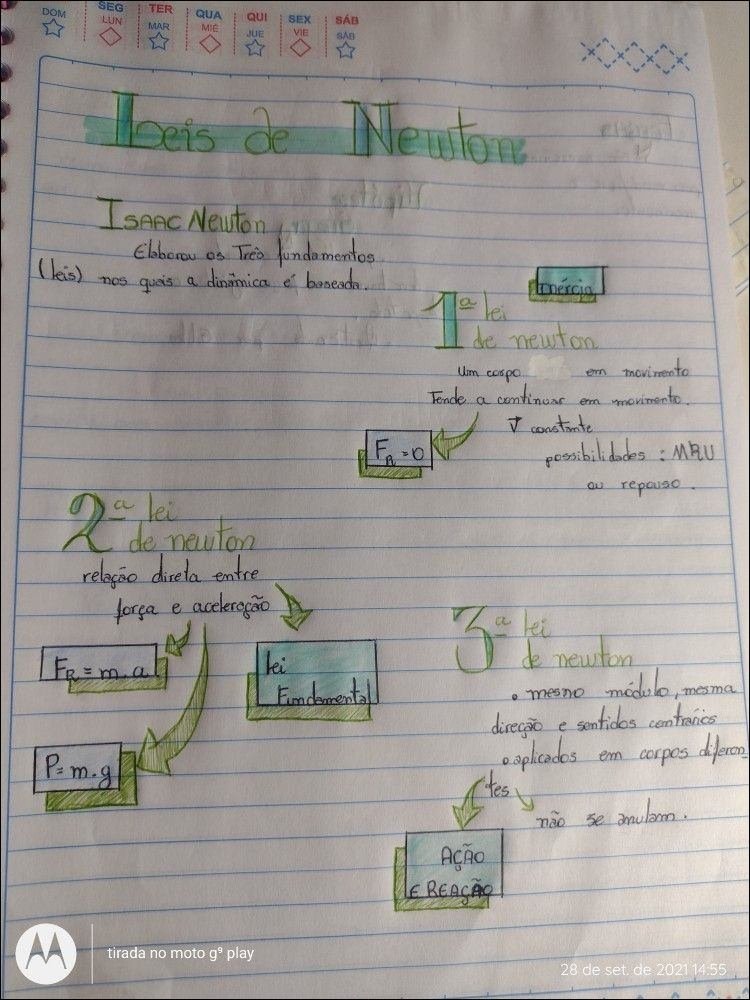 DOM
SEG TER QUA QUI SEX SÁB
LUN MAR MIÉ JUE VIE SÁB
Leis de Newton
ISAAC NEWTON
Elaborou os Três fundamentos
(leis) nos quais a dinâmica é baseada.
Inércia
1ª lei
de newton
Um corpo em movimento
Tende a continuar em movimento.
V constante
FR = 0
possibilidades : MRU
ou repouso.
2ª lei
de newton
relação direta entre
força e aceleração
FR = m.a
lei
Fundamental
P = m.g
3ª lei
de newton
• mesmo módulo, mesma
direção e sentidos contrários
• aplicados em corpos diferen
tes
não se anulam.
AÇÃO
E REAÇÃO
tirada no moto g⁹ play
28 de set. de 2021 14:55